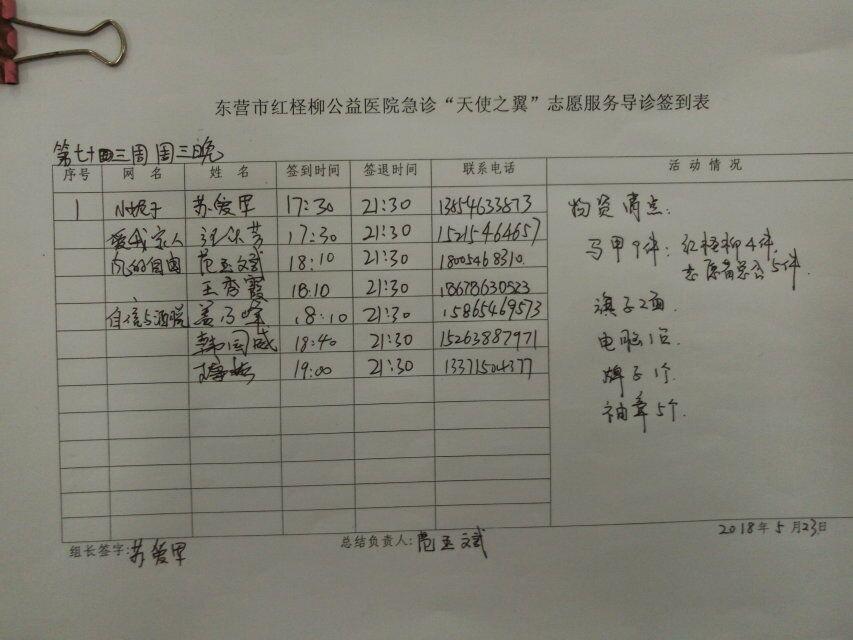 东营市红柽柳公益医院急诊“天使之翼”志愿服务导诊签到表
第七十四三周 周三晚
序号 网 名 姓 名 签到时间 签退时间 联系电话 活 动 情 况
1 小妮子 苏爱军 17:30 21:30 13854633873
爱我家人 17:30 21:30 15215464657
范玉斌 18:10 21:30 18005468310
王秀霞 18:10 21:30 18678630523
自信与洒脱 盖乃峰 18:10 21:30 15865469573
韩国威 18:40 21:30 15263887971
19:00 21:30 13371504377
物资清点:
马甲9件: 红柽柳4件
志愿者总会5件
旗子2面.
电脑1台
牌子1个.
袖章5个.
2018年5月23日
组长签字: 苏爱军
总结负责人: 范玉斌